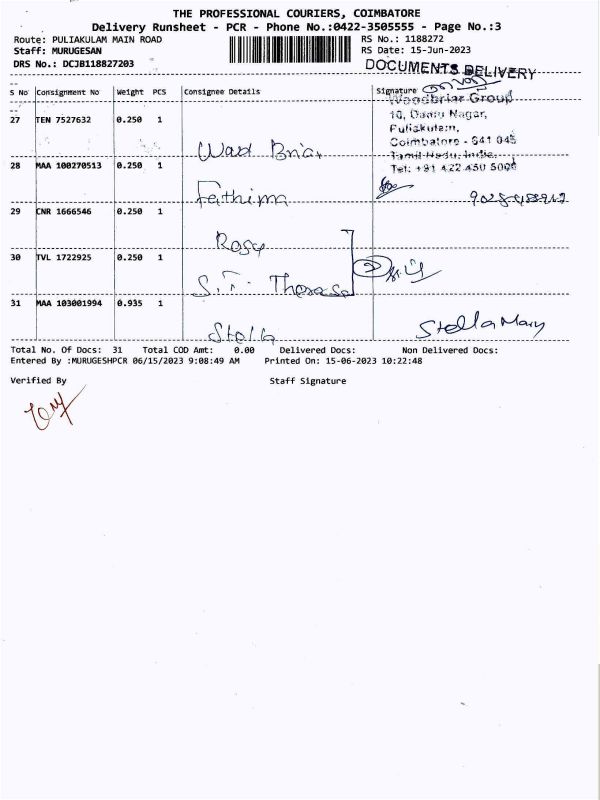 THE PROFESSIONAL COURIERS, COIMBATORE
Delivery Runsheet - PCR - Phone No.:0422-3505555 - Page No.:3
Route: PULIAKULAM MAIN ROAD RS No.: 1188272
Staff: MURUGESAN RS Date: 15-Jun-2023
DRS No.: DCJB118827203 DOCUMENTS DELIVERY
S No Consignment No Weight PCS Consignee Details Signature
Woodbriar Group
27 TEN 7527632 0.250 1
Puliakulam,
Coimbatore - 641 045
Tamil Nadu, India.
28 MAA 100270513 0.250 1
Tel: +91 422 450 5000
Fathima
29 CNR 1666546 0.250 1
Rosy
30 TVL 1722925 0.250 1
S.T. Theresa
31 MAA 103001994 0.935 1
Stella Stella Mary
Total No. Of Docs: 31 Total COD Amt: 0.00 Delivered Docs: Non Delivered Docs:
Entered By :MURUGESHPCR 06/15/2023 9:08:49 AM Printed On: 15-06-2023 10:22:48
Verified By Staff Signature